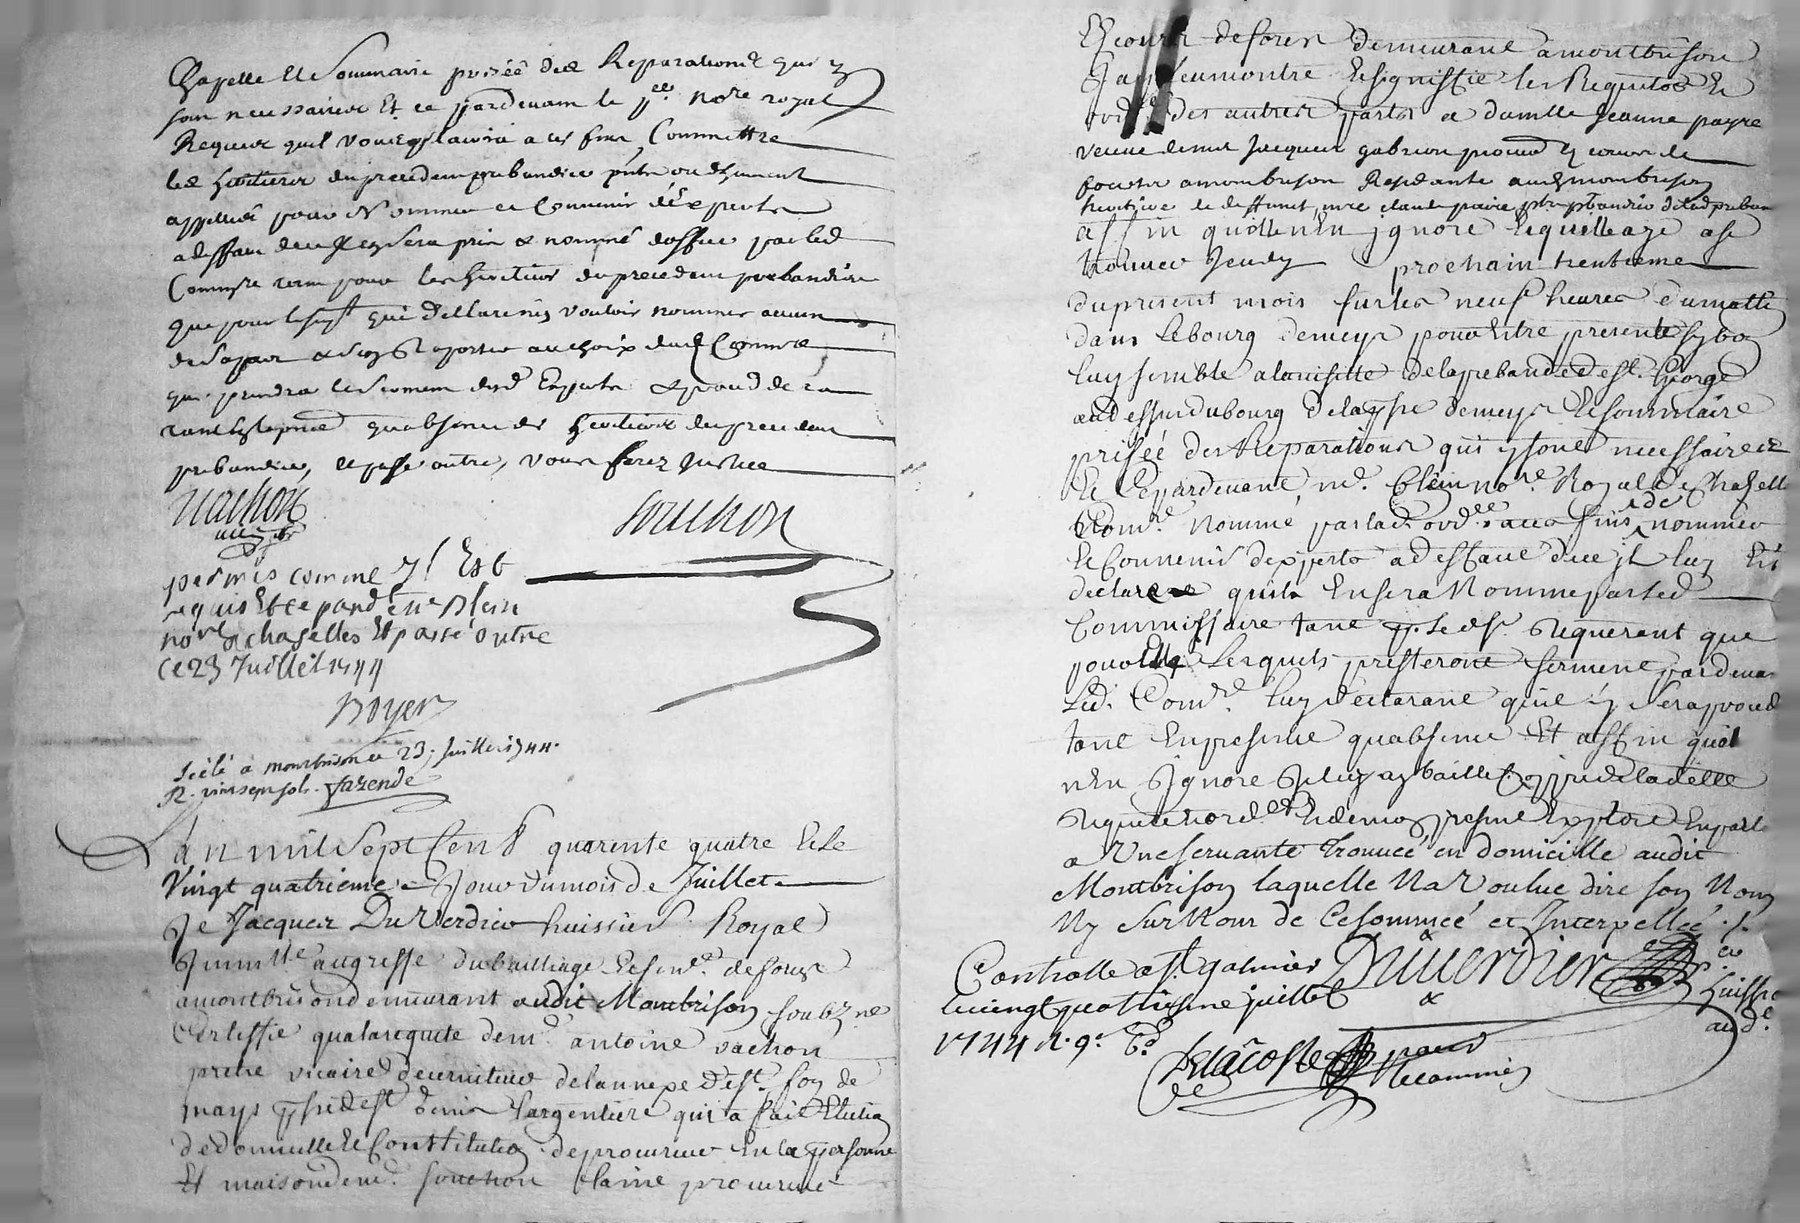 Chapelle et Sommaire prisée des Reparations qui y
sont necessaires Et ce pardevant le pr. nore royal
Requeroit quil vous plaise a ces fins Commettre
les heritiers du precedent prebandier
appellés pour Nommer et Convenir d'Experts
a deffaut de ce il en sera pris et nommé d'office par led
Commre tant pour les heritiers du precedent prebandier
que pour le supt qui declare n'en vouloir nommer aucun
de sa part et s'en raporter au choix dud Commre
qui prendra le serment desd Experts et procedera
tant en presence qu'absence des heritiers du precedent
prebandier, et passé outre, vous ferez Justice
Vachon
Souchon
permis comme Il Est
requis Et ce pardt me Blein
nore a chazelles Et passé outre
Ce 23 Juillet 1744
Boyer
Scélé a montbrison ce 23. Juillet 1744.
R. vint sept sols. fazende
L'an mil Sept Cens quarente quatre Et Le
Vingt quatrieme Jour du mois de Juillet
Je Jacques Duverdier huissier Royal
Immlle au greffe du bailliage Et senee de forez
a montbrison demeurant audit Montbrison soubzne
Certiffie qu'a la requete de mr antoine vachon
pretre vicaire de l'annexe de st. foy de
mays psse de st denis l'argentiere qui a fait Election
de domicille Et Constitution de procureur En la personne
Et maison de mr. Souchon l'ainé procureur
Es cours de forez demeurant a montbrison
J'ay deument montré Et signiffié les Requetes Et
ordce des autres parts a damlle Jeanne payre
veuve de me Jacques gabrion procur Es cours de
forez a montbrison Residante aud montbrison
heritiere de deffunt mre claude paire ptre prebandier de lad preban
affin qu'elle n'En ignore Et qu'elle aye a se
trouver Jeudy prochain trentieme
du present mois sur les neuf heures du matin
dans Le bourg de meys pour Etre presente sy bon
luy semble a la visitte de la prebande de st. George
au dessus du bourg de la psse de meys Et sommaire
prisée des Reparations qui y sont necessaires
Et Ce pardevant mr. Blein nore Royal de Chazelle
Commre nommé par lad. ordce a ces fins, de nommer
Et Convenir d'experts a deffaut de ce Je luy Ay
declaré quils En sera Nommé par led
Commissaire tant p. Led sr. Requerant que
pour Elle Lesquels presteront serment pardevant
Led. Comre luy declarant qu'il y sera procedé
tant En presence qu'absence Et affin qu'el
n'En Ignore Je luy ay baillé Coppie de la delle
requete ordce Et du present Exploit En parlt
a Une servante trouvée en domicille audit
Montbrison laquelle Na voulue dire son Nom
Ny Surnom de Ce sommée et Interpellée
Duverdier
huissier
aud.
Controllé a st. galmier
le vingt quatrieme juillet
1744 R. 9s. 6d
Delacoste pour
le commis